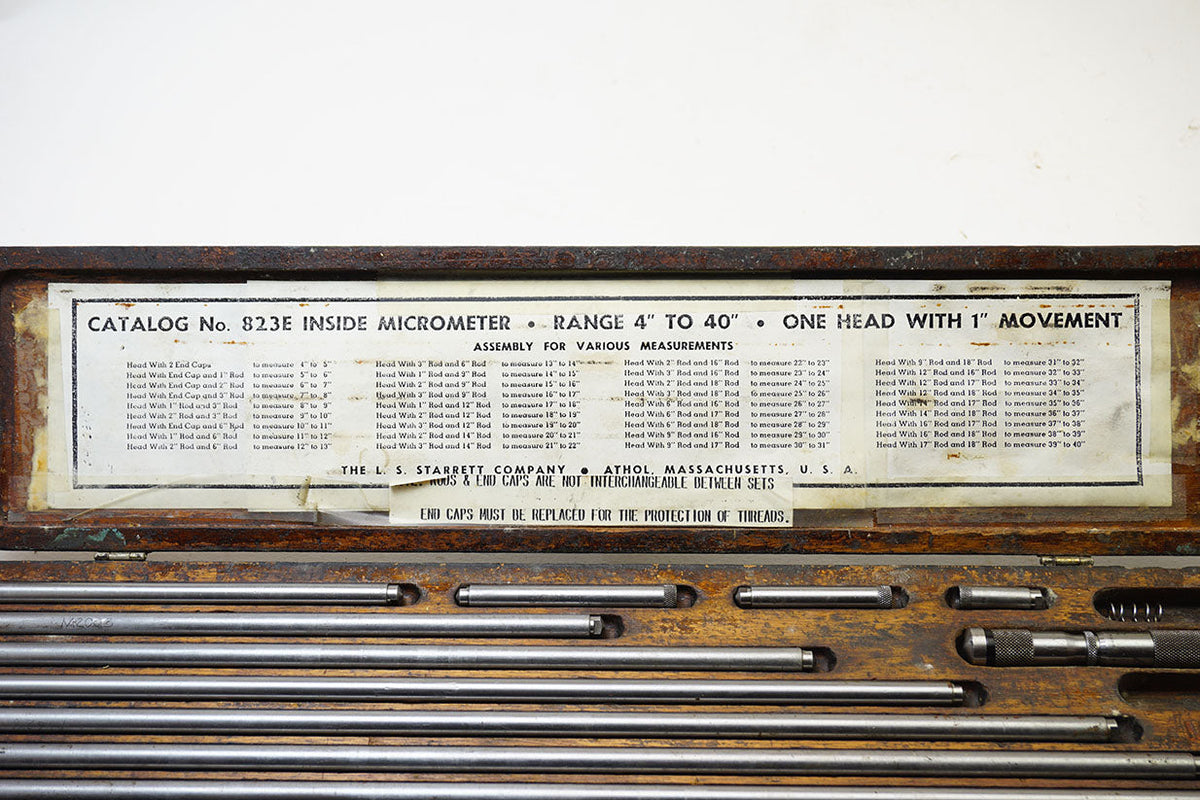 CATALOG No. 823E INSIDE MICROMETER • RANGE 4" TO 40" • ONE HEAD WITH 1" MOVEMENT
ASSEMBLY FOR VARIOUS MEASUREMENTS
Head With 2 End Caps to measure 4" to 5"
Head With End Cap and 1" Rod to measure 5" to 6"
Head With End Cap and 2" Rod to measure 6" to 7"
Head With End Cap and 3" Rod to measure 7" to 8"
Head With 1" Rod and 3" Rod to measure 8" to 9"
Head With 2" Rod and 3" Rod to measure 9" to 10"
Head With End Cap and 6" Rod to measure 10" to 11"
Head With 1" Rod and 6" Rod to measure 11" to 12"
Head With 2" Rod and 6" Rod to measure 12" to 13"
Head With 3" Rod and 6" Rod to measure 13" to 14"
Head With 1" Rod and 9" Rod to measure 14" to 15"
Head With 2" Rod and 9" Rod to measure 15" to 16"
Head With 3" Rod and 9" Rod to measure 16" to 17"
Head With 1" Rod and 12" Rod to measure 17" to 18"
Head With 2" Rod and 12" Rod to measure 18" to 19"
Head With 3" Rod and 12" Rod to measure 19" to 20"
Head With 2" Rod and 14" Rod to measure 20" to 21"
Head With 3" Rod and 14" Rod to measure 21" to 22"
Head With 2" Rod and 16" Rod to measure 22" to 23"
Head With 3" Rod and 16" Rod to measure 23" to 24"
Head With 2" Rod and 18" Rod to measure 24" to 25"
Head With 3" Rod and 18" Rod to measure 25" to 26"
Head With 6" Rod and 16" Rod to measure 26" to 27"
Head With 6" Rod and 17" Rod to measure 27" to 28"
Head With 6" Rod and 18" Rod to measure 28" to 29"
Head With 9" Rod and 16" Rod to measure 29" to 30"
Head With 9" Rod and 17" Rod to measure 30" to 31"
Head With 9" Rod and 18" Rod to measure 31" to 32"
Head With 12" Rod and 16" Rod to measure 32" to 33"
Head With 12" Rod and 17" Rod to measure 33" to 34"
Head With 12" Rod and 18" Rod to measure 34" to 35"
Head With 14" Rod and 17" Rod to measure 35" to 36"
Head With 14" Rod and 18" Rod to measure 36" to 37"
Head With 16" Rod and 17" Rod to measure 37" to 38"
Head With 16" Rod and 18" Rod to measure 38" to 39"
Head With 17" Rod and 18" Rod to measure 39" to 40"
THE L. S. STARRETT COMPANY • ATHOL, MASSACHUSETTS, U. S. A.
RODS & END CAPS ARE NOT INTERCHANGEABLE BETWEEN SETS
END CAPS MUST BE REPLACED FOR THE PROTECTION OF THREADS.